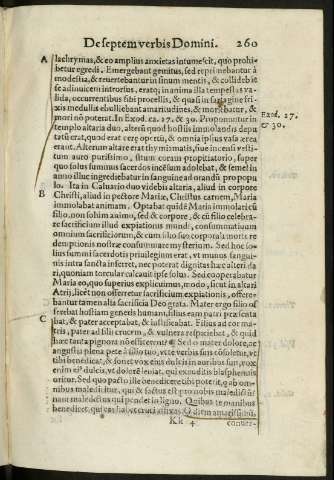 De septem verbis Domini. 260
A lachrymas, & eo amplius anxietas intumescit, quo prohi-
betur egredi. Emergebant gemitus, sed reprimebantur à
modestia, & revertebantur in sinum mentis, & collidebāt
se ad invicem introrsus. eratq; in anima illa tempestas va-
lida, occurrentibus sibi procellis, & quasi in sartagine fri-
xis medullis ebulliebant amaritudines, & moriebatur, &
mori nō poterat. In Exod. ca. 27. & 30. Proponuntur in
Exod. 27.
& 30.
templo altaria duo, alterū quod hostiis immolādis depu
tatū erat, quod erat cere opertū, & omnia ipsius vasa ærea
erant. Alterum altare erat thymiamatis, sive incensi vesti-
tum auro purissimo, situm coram propitiatorio, super
quo solus summus sacerdos incēsum adolebat, & semel in
anno illuc ingrediebatur in sanguine ad orandū pro popu
lo. Ita in Calvario duo videbis altaria, aliud in corpore
B Christi, aliud in pectore Mariæ, Christus carnem, Maria
immolabat animam. Optabat quidē Maria immolari cū
filio, non solùm animo, sed & corpore, & cū filio celebra-
re sacrificium illud expiationis mundi, consummativum
omnium sacrificiorum, & cum filio suo corporali morte re
demptionis nostræ consummare mysterium. Sed hoc so-
lius summi sacerdotis privilegium erat, vt munus sangui-
nis intra sancta inferret, nec poterat dignitas hæc alteri da
ri, quoniam torcular calcavit ipse solus. Sed cooperabatur
Maria eo, quo superius explicuimus, modo, sicut in altari
Atrij, licèt non offerretur sacrificium expiationis, offere-
bantur tamen alia sacrificia Deo grata. Mater ergo filiū of
ferebat hostiam generis humani, filius eam patri præsenta
C bat, & pater acceptabat, & lætificabat. Filius ad cor ma-
tris, pater ad filij crucem, & vulnera respiciebat, & quid
hæc tanta pignora nō efficerent? Sed ò mater dolore, ac
angustijs plena pete à filio tuo, vt te verbis suis cōsoletur, vt
tibi benedicat, & sonet vox eius dulcis in auribus tuis, vox
enim ei⁹ dulcis, vt dolorē leniat, qui ex auditis blasphemijs
oritur. Sed quo pacto ille benedicere tibi poterit, q̄ ab om-
nibus maledicitur, qui & factus est pro nobis maledictū si-
cut maledictus qui pendet in ligno. Quibus te manibus
benedicet, qui eas habet cruci affixas? O ditem amarissimū,
Kk 4 conver-